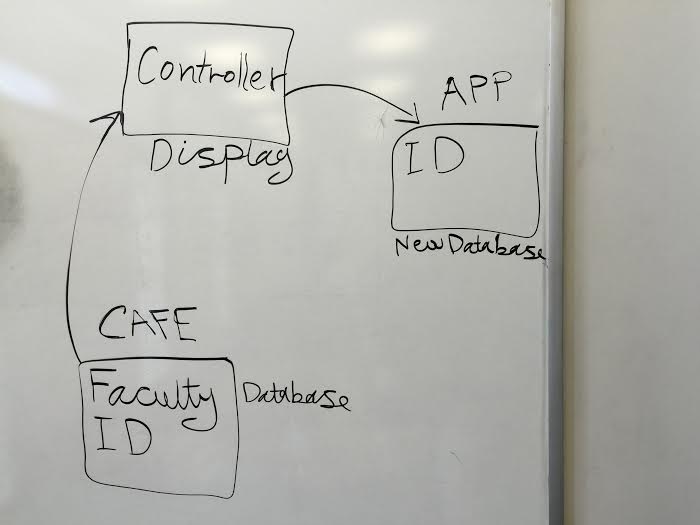 Controller
Display
APP
ID
New Database
CAFE
Faculty
ID
Database